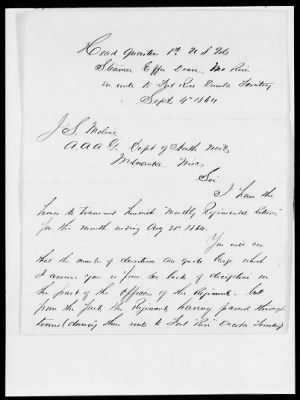 Head Quarters 1st U S Vols
Steamer Effie Deans Mo River
en route to Fort Rice Dacota Territory
Sept 4th 1864
J. S. Moline
A.A.A.G. Dept of North West
Milwaukee Wisc
Sir
I have the
honor to transmit herewith Monthly Regimental Return
for the month ending Aug 31st 1864.
You will see
that the number of desertions are quite large which
I assure you is from the lack of discipline on
the part of the officers of the Regiment, but
from the fact, the Regiment having passed through
towns (during their route to Fort Rice Dacota Territory)